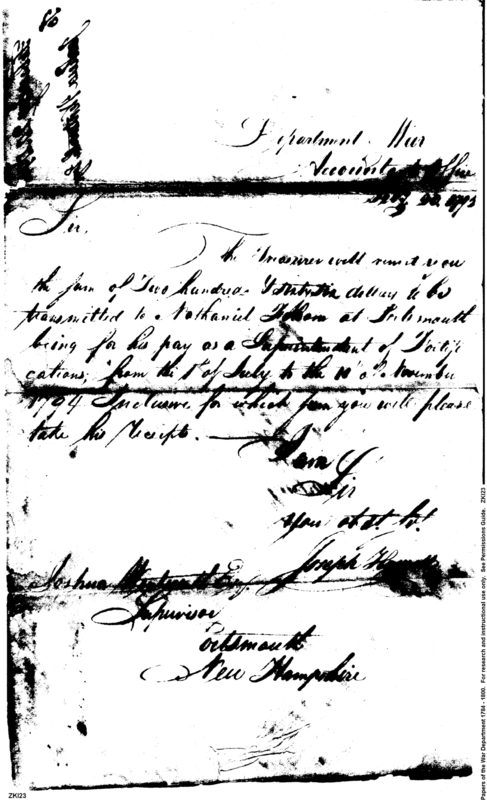 Department War
Accountants Office
1795
Sir,
The Treasurer will remit you
the sum of Two hundred dollars to be
transmitted to Nathaniel Folsom at Portsmouth
being for his pay as a Superintendent of Fortifi
cations, from the 1st of July to the 10th of November
1794 Inclusive for which sum you will please
take his Receipt.
I am
Sir
your obt. St.
Joseph Howell
Joshua Wentworth Esq
Supervisor
Portsmouth
New Hampshire
Papers of the War Department 1784 - 1800. For research and instructional use only. See Permissions Guide. ZKI23
ZKI23